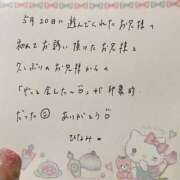 5月20日に遊んでくれたお兄様♥
初めてお誘い頂けたお兄様と
久しぶりのお兄様からの
「やっと会えた〜」が印象的
だった☺ ありがとう
ひなみ